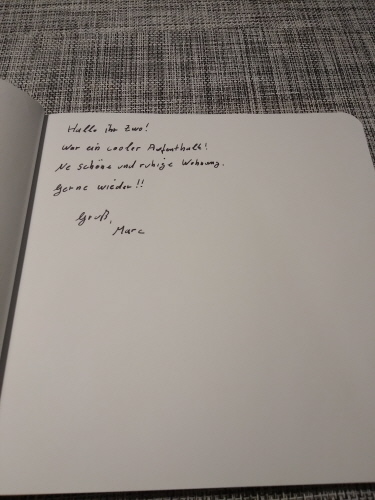 Hallo ihr zwo!
War ein cooler Aufenthalt!
Ne schöne und ruhige Wohnung.
Gerne wieder!!
Gruß,
Marc